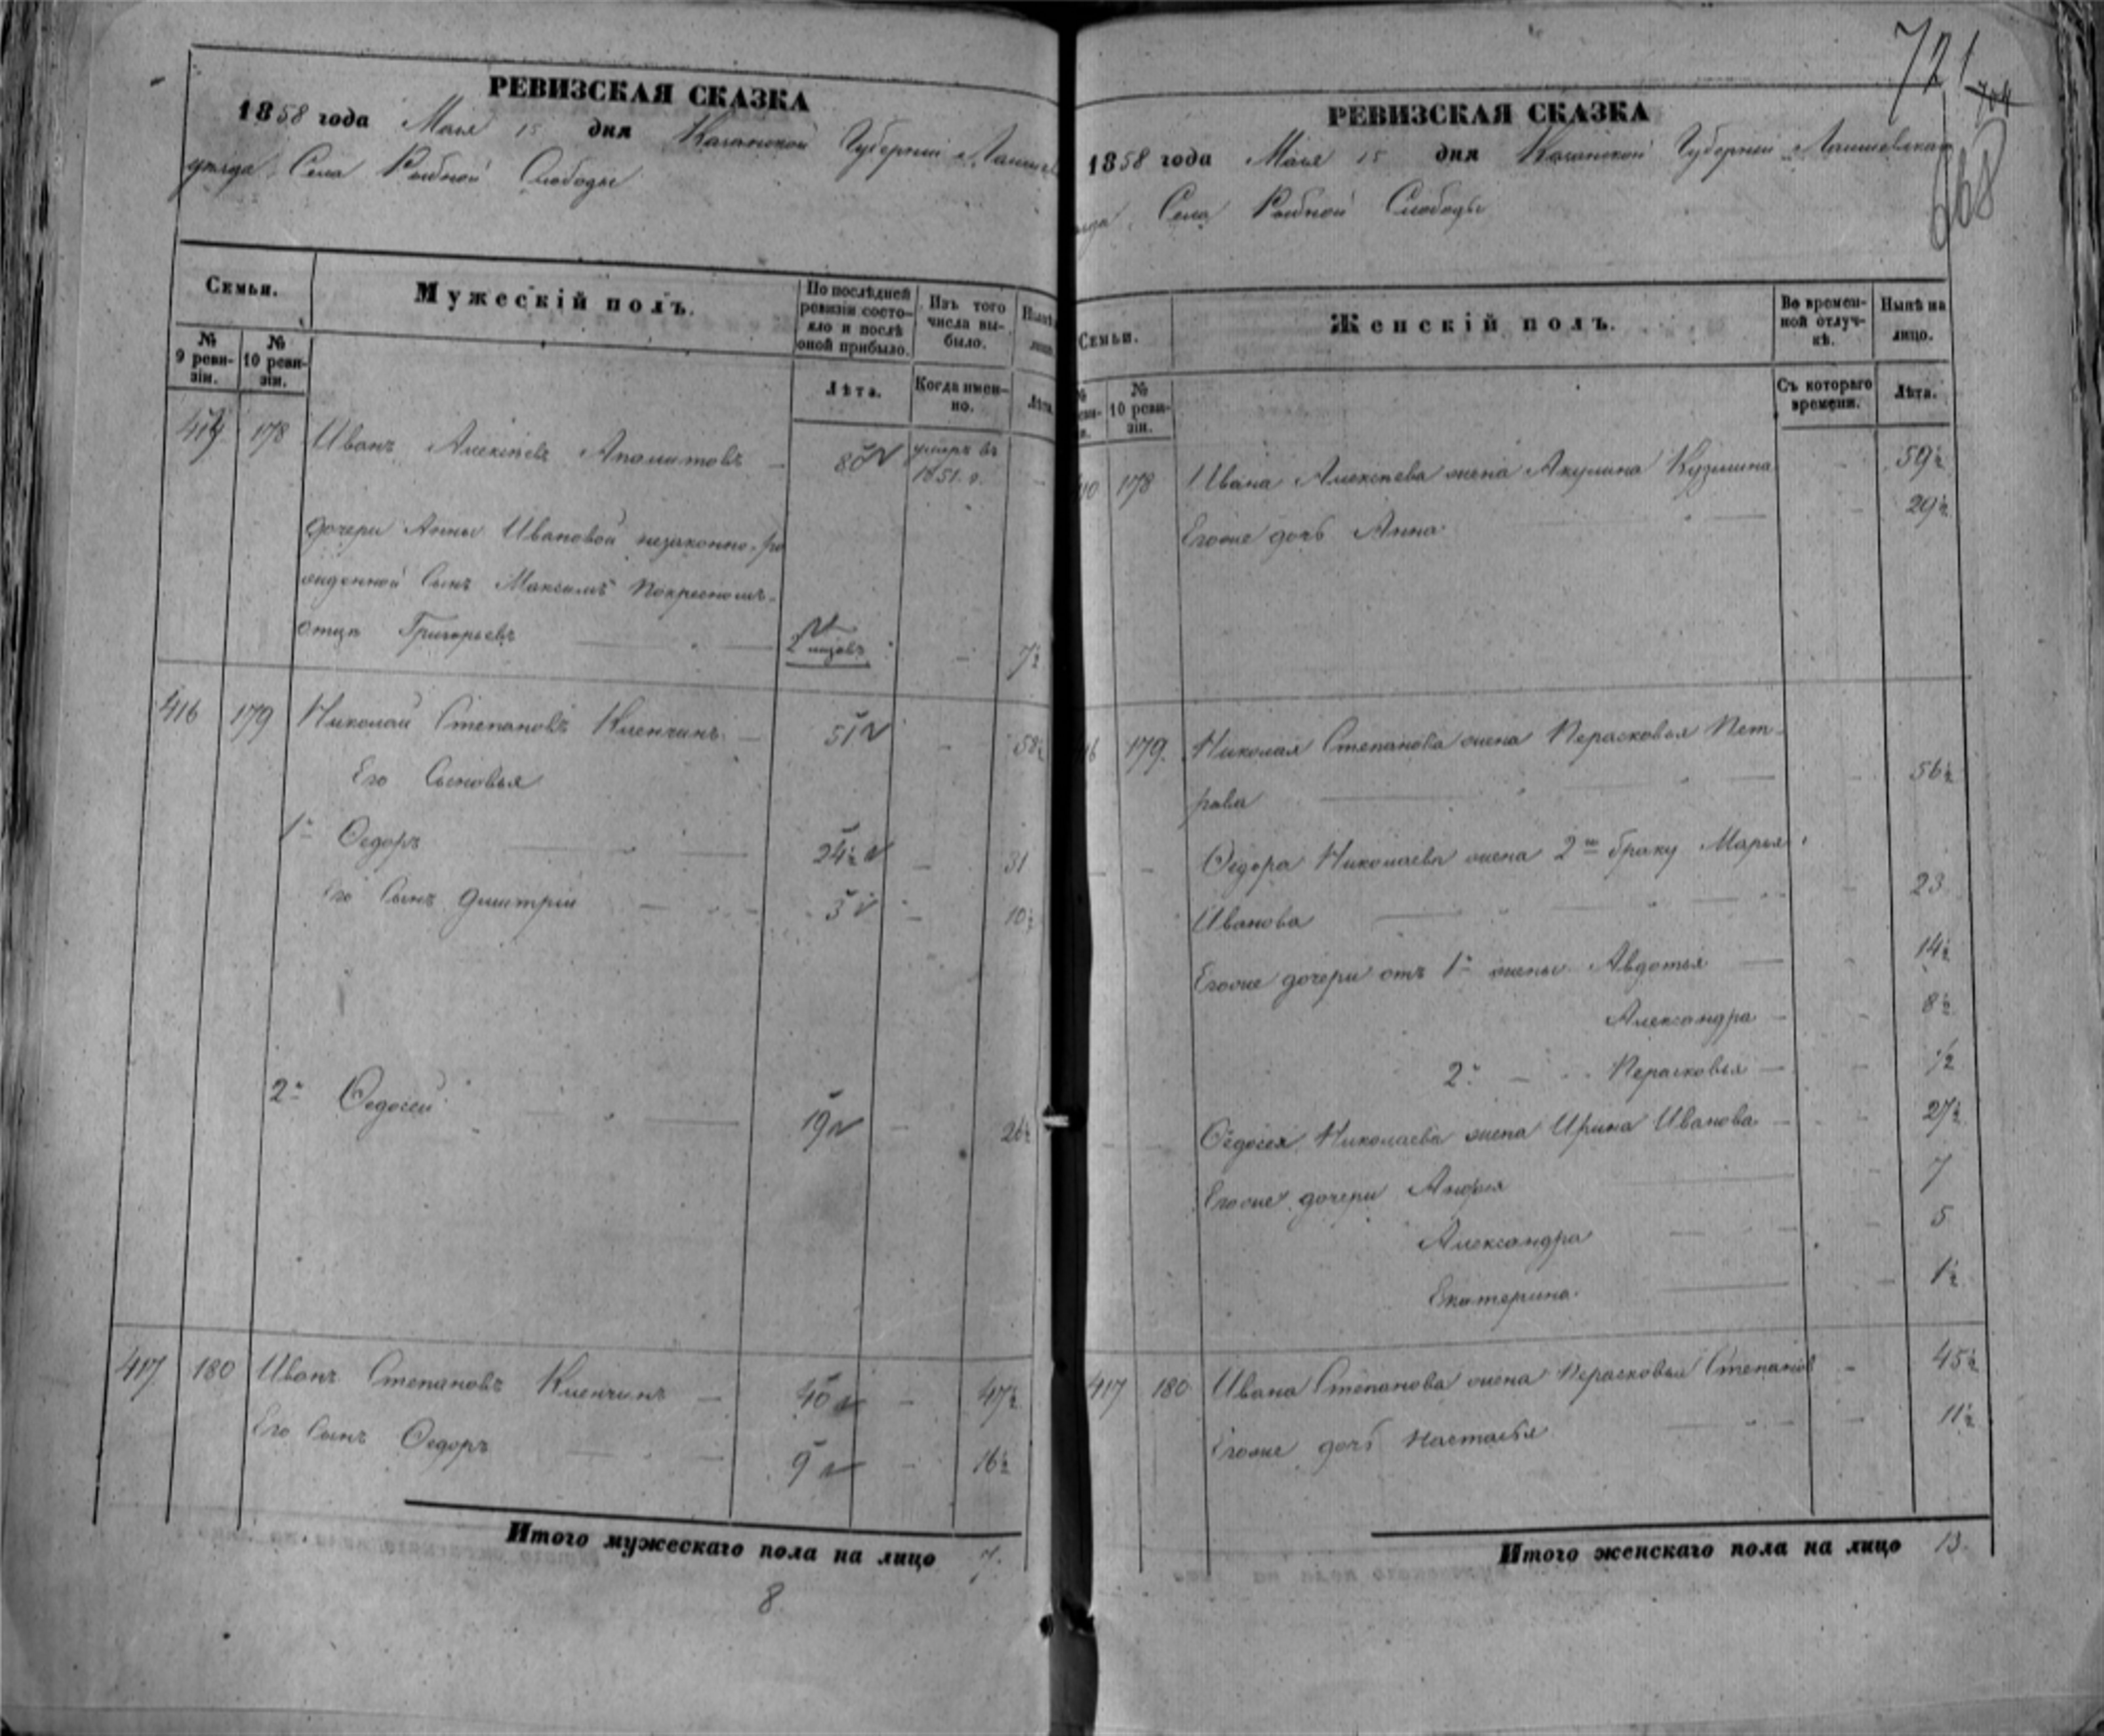 РЕВИЗСКАЯ СКАЗКА
1858 года Маія 15 дня Казанской Губерніи Лаишев
уезда Села Рыбной Слободы
Семьи.
Мужескій полъ.
По последней ревизіи состояло и послѣ оной прибыло.
Изъ того числа выбыло.
№ 9 ревизіи.
№ 10 ревизіи.
Лѣта.
Когда именно.
Лѣта
414 178 Иванъ Алексѣевъ 80 умеръ въ
1851. г.
Дочери Анны Ивановой незаконно-ро
жденной Сынъ Максимъ
отцѣ Григорьевъ 7½
416 179 Николай Степановъ Кленчинъ 51 58½
Его Сыновья
1й Ѳедоръ 24½ 31
Его Сынъ Дмитрій 3 10½
2й Ѳедосей 19 26½
417 180 Иванъ Степановъ Кленчинъ 40 47½
Его Сынъ Ѳедоръ 9 16½
Итого мужескаго пола на лицо 7.
8
721
704
668
РЕВИЗСКАЯ СКАЗКА
1858 года Маія 15 дня Казанской Губерніи Лаишевскаго
Села Рыбной Слободы
Семьи.
Женскій полъ.
Во временной отлучкѣ.
Нынѣ на лицо.
№ 10 ревизіи.
Съ котораго времени.
Лѣта.
178 Ивана Алексѣева жена Акулина Кузмина 59½
Егоже дочь Анна 29½
179. Николая Степанова жена Перасковья Пет-
рова 56½
Ѳедора Николаева жена 2го браку Марья
Иванова 23
Егоже дочери отъ 1й жены Авдотья 14½
Александра 8½
2й Перасковья ½
Ѳедосея Николаева жена Ирина Иванова 27½
Егоже дочери 7
Александра 5
Екатерина 1½
417 180 Ивана Степанова жена Перасковья Степанов 45½
Егоже дочь Настасья 11½
Итого женскаго пола на лицо 13.